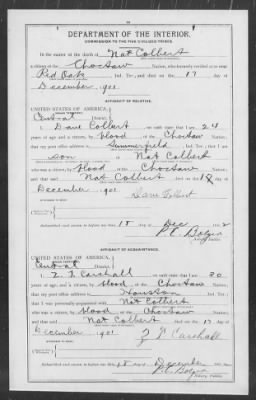 DEPARTMENT OF THE INTERIOR.
COMMISSION TO THE FIVE CIVILIZED TRIBES.
In the matter of the death of Nat Colbert
a citizen of the Choctaw Nation, who formerly resided at or near
Red Oak, Ind. Ter., and died on the 17 day of
December, 1901
AFFIDAVIT OF RELATIVE.
UNITED STATES OF AMERICA,
INDIAN TERRITORY,
Central District.
I, Dave Colbert, on oath state that I am 24
years of age and a citizen, by blood, of the Choctaw Nation;
that my post office address is Summerfield, Ind. Ter.; that I am
son of Nat Colbert
who was a citizen, by blood, of the Choctaw Nation
and that said Nat Colbert died on the 18 day of
December, 1901
Dave Colbert
Subscribed and sworn to before me this 18 day of Dec 190 2
P. C. Bolger
Notary Public.
AFFIDAVIT OF ACQUAINTANCE.
UNITED STATES OF AMERICA,
INDIAN TERRITORY,
Central District.
on oath state that I am
years of age, and a citizen, by blood, of the Choctaw Nation;
that my post office address is Houston, Ind. Ter.;
that I was personally acquainted with Nat Colbert
who was a citizen, by blood, of the Choctaw Nation
and that said Nat Colbert died on the 17 day of
December, 1901
Subscribed and sworn to before me this 18 day of December
P. C. Bolger
Notary Public.